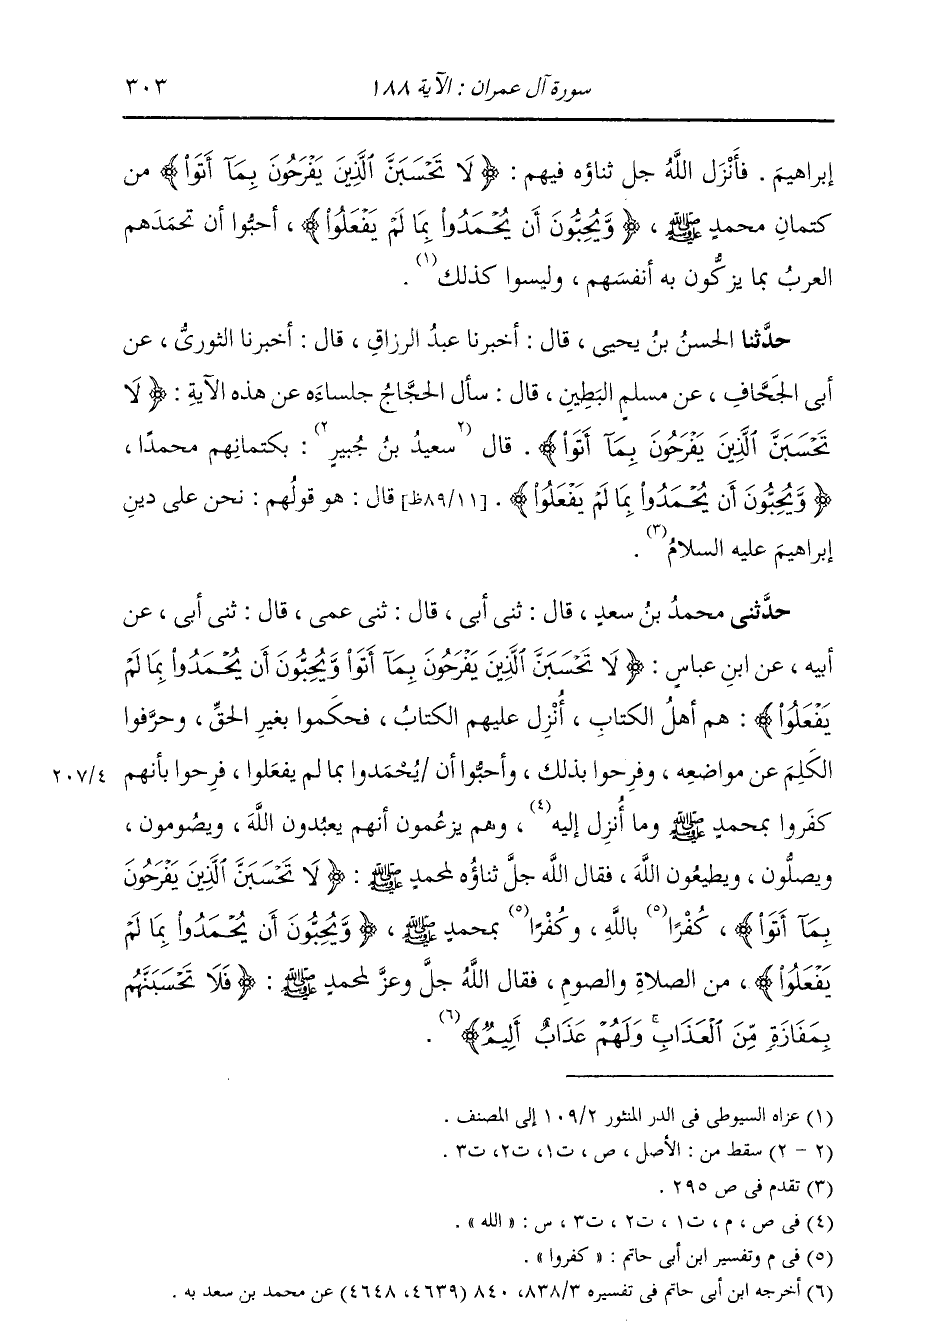 سورة آل عمران : الآية ١٨٨ ٣٠٣
إبراهيمَ . فأَنْزَل اللَّهُ جل ثناؤه فيهم : ﴿ لَا تَحْسَبَنَّ ٱلَّذِينَ يَفْرَحُونَ بِمَآ أَتَوا۟ ﴾ من
كتمانِ محمدٍ ﷺ ، ﴿ وَّيُحِبُّونَ أَن يُحْمَدُوا۟ بِمَا لَمْ يَفْعَلُوا۟ ﴾ ، أحبُّوا أن تحمَدَهم
العربُ بما يزكُّون به أنفسَهم ، وليسوا كذلك(١) .
حدَّثنا الحسنُ بنُ يحيى ، قال : أخبرنا عبدُ الرزاقِ ، قال : أخبرنا الثورىُّ ، عن
أبى الجَحَّافِ ، عن مسلمٍ البَطِينِ ، قال : سأل الحجَّاجُ جلساءَه عن هذه الآيةِ : ﴿ لَا
تَحْسَبَنَّ ٱلَّذِينَ يَفْرَحُونَ بِمَآ أَتَوا۟ ﴾ . قال (٢سعيدُ بنُ جُبيرٍ٢) : بكتمانِهم محمدًا ،
﴿ وَّيُحِبُّونَ أَن يُحْمَدُوا۟ بِمَا لَمْ يَفْعَلُوا۟ ﴾ . [٨٩/١١ظ] قال : هو قولُهم : نحن على دينِ
إبراهيمَ عليه السلامُ(٣) .
حدَّثنى محمدُ بنُ سعدٍ ، قال : ثنى أبى ، قال : ثنى عمى ، قال : ثنى أبى ، عن
أبيه ، عن ابنِ عباسٍ : ﴿ لَا تَحْسَبَنَّ ٱلَّذِينَ يَفْرَحُونَ بِمَآ أَتَوا۟ وَّيُحِبُّونَ أَن يُحْمَدُوا۟ بِمَا لَمْ
يَفْعَلُوا۟ ﴾ : هم أهلُ الكتابِ ، أُنْزِل عليهم الكتابُ ، فحكَموا بغيرِ الحقِّ ، وحرَّفوا
الكَلِمَ عن مواضعِه ، وفرِحوا بذلك ، وأحبُّوا أن /يُحْمَدوا بما لم يفعَلوا ، فرِحوا بأنهم ٢٠٧/٤
كفَروا بمحمدٍ ﷺ وما أُنزِل إليه(٤) ، وهم يزعُمون أنهم يعبُدون اللَّهَ ، ويصُومون ،
ويصلُّون ، ويطيعُون اللَّهَ ، فقال اللَّه جلَّ ثناؤُه لمحمدٍ ﷺ : ﴿ لَا تَحْسَبَنَّ ٱلَّذِينَ يَفْرَحُونَ
بِمَآ أَتَوا۟ ﴾ ، كُفْرًا(٥) باللَّهِ ، وكُفْرًا(٥) بمحمدٍ ﷺ ، ﴿ وَّيُحِبُّونَ أَن يُحْمَدُوا۟ بِمَا لَمْ
يَفْعَلُوا۟ ﴾ ، من الصلاةِ والصومِ ، فقال اللَّهُ جلَّ وعزَّ لمحمدٍ ﷺ : ﴿ فَلَا تَحْسَبَنَّهُم
بِمَفَازَةٍ مِّنَ ٱلْعَذَابِ ۚ وَلَهُمْ عَذَابٌ أَلِيمٌ ﴾(٦) .
(١) عزاه السيوطى فى الدر المنثور ١٠٩/٢ إلى المصنف .
(٢ - ٢) سقط من : الأصل ، ص ، ت١، ت٢، ت٣ .
(٣) تقدم فى ص ٢٩٥ .
(٤) فى ص ، م ، ت١ ، ت٢ ، ت٣ ، س : « الله » .
(٥) فى م وتفسير ابن أبى حاتم : « كفروا » .
(٦) أخرجه ابن أبى حاتم فى تفسيره ٨٣٨/٣، ٨٤٠ (٤٦٣٩، ٤٦٤٨) عن محمد بن سعد به .